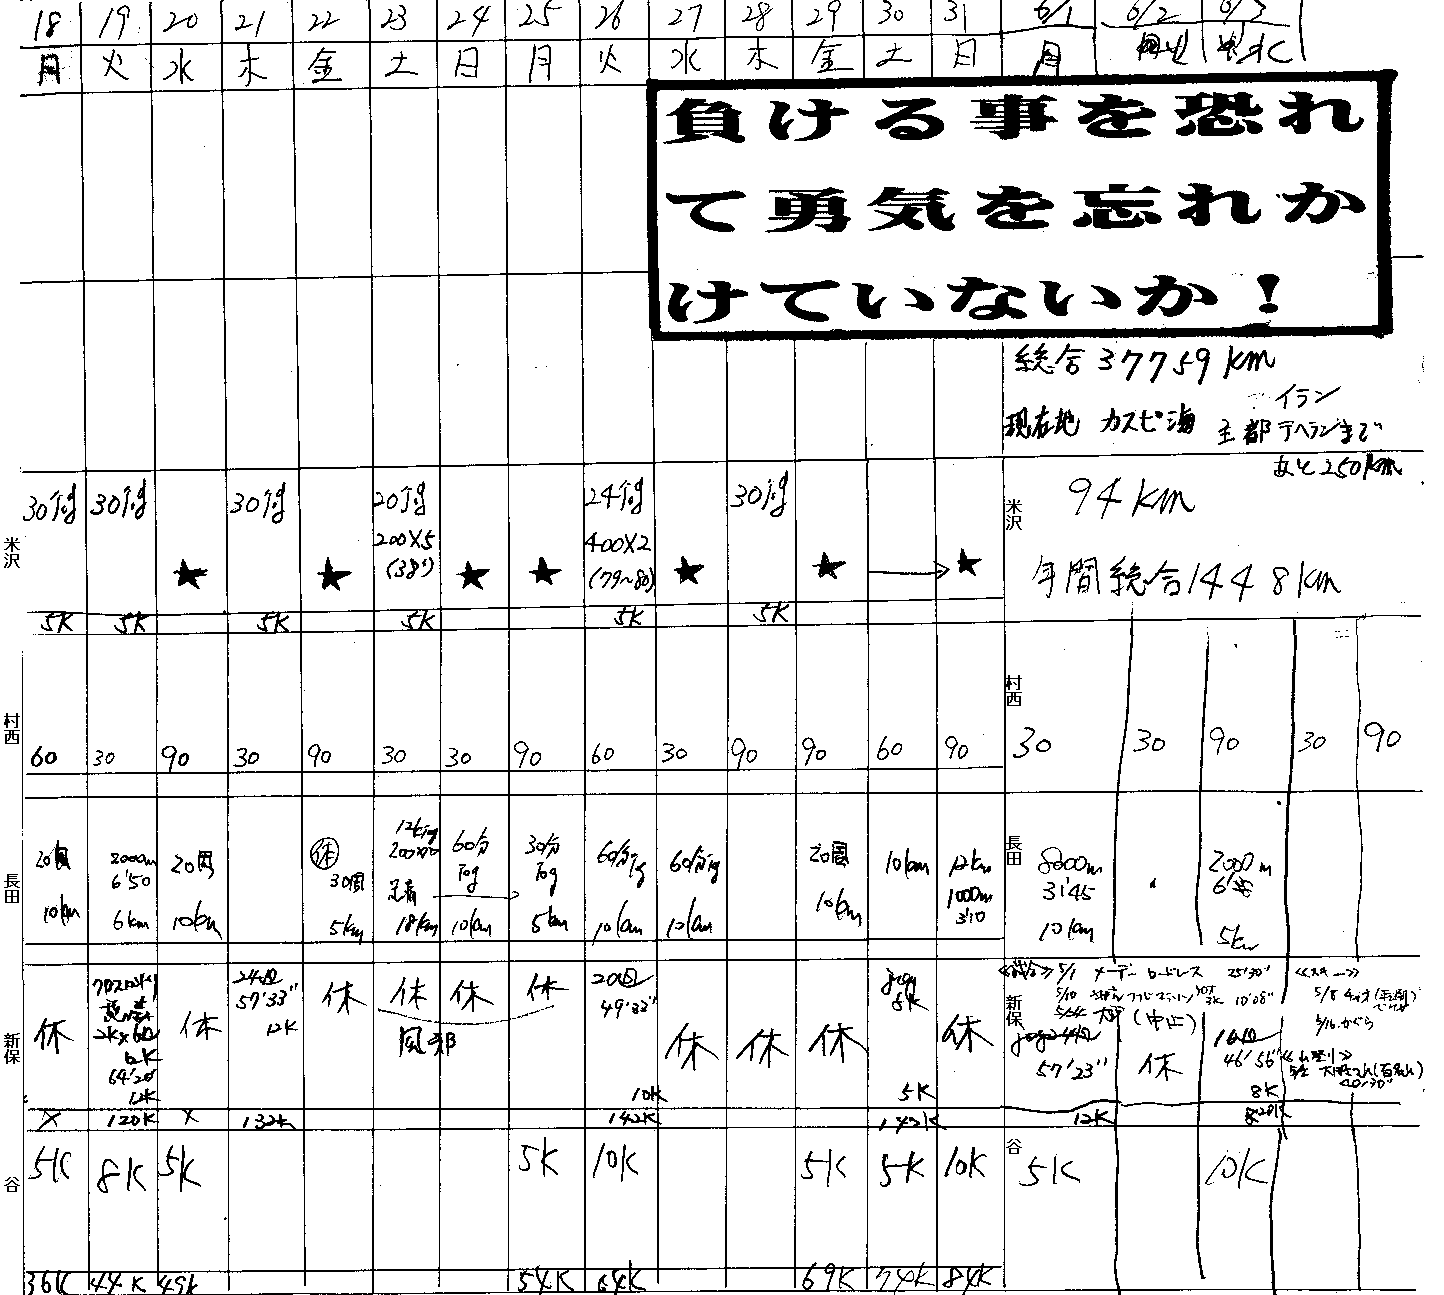 18 19 20 21 22 23 24 25 26 27 28 29 30 31 6/1 6/2 6/3
月 火 水 木 金 土 日 月 火 水 木 金 土 日 月 水
負ける事を恐れ
て勇気を忘れか
けていないか！
総合37759km
現在地 カスピ海 イラン
主都テヘランまで
あと250km
米沢
30jog 30jog 30jog 20jog 24jog 30jog
200×5 400×2
(38") (79~80)
★ ★ ★ ★ ★ ★ ★
5K 5K 5K 5K 5K 5K
米沢
94km
年間総合1448km
村西
60 30 90 30 90 30 30 90 60 30 90 90 60 90
村西
30 30 90 30 90
長田
20周 2000m 20周 休 12kjog 60分 30分 60分jg 60分jg 20周 10km 12km
6'50 30周 jog jog 1000m
3'10
10km 6km 10km 5km 18km 10km 5km 10km 10km 10km
長田
8000m 2000m
3'45
10km 5km
新保
休 休 24周 休 休 休 休 20周 jog 休 休 休 休
57'33" 49'33" 5K
2K×6
64'20
12K 12K 風邪 10K 5K
× 120K × 132K 142K 143K
新保
5/1 メーデーロードレース 25'30" ≪スキー≫
10'08"
(中止) 5/16 かぐら
57'23" 休 46'56"
12K 8K
谷
5K 8K 5K 5K 10K 5K 5K 10K
36K 44K 49K 54K 64K 69K 74K 84K
谷
5K 10K